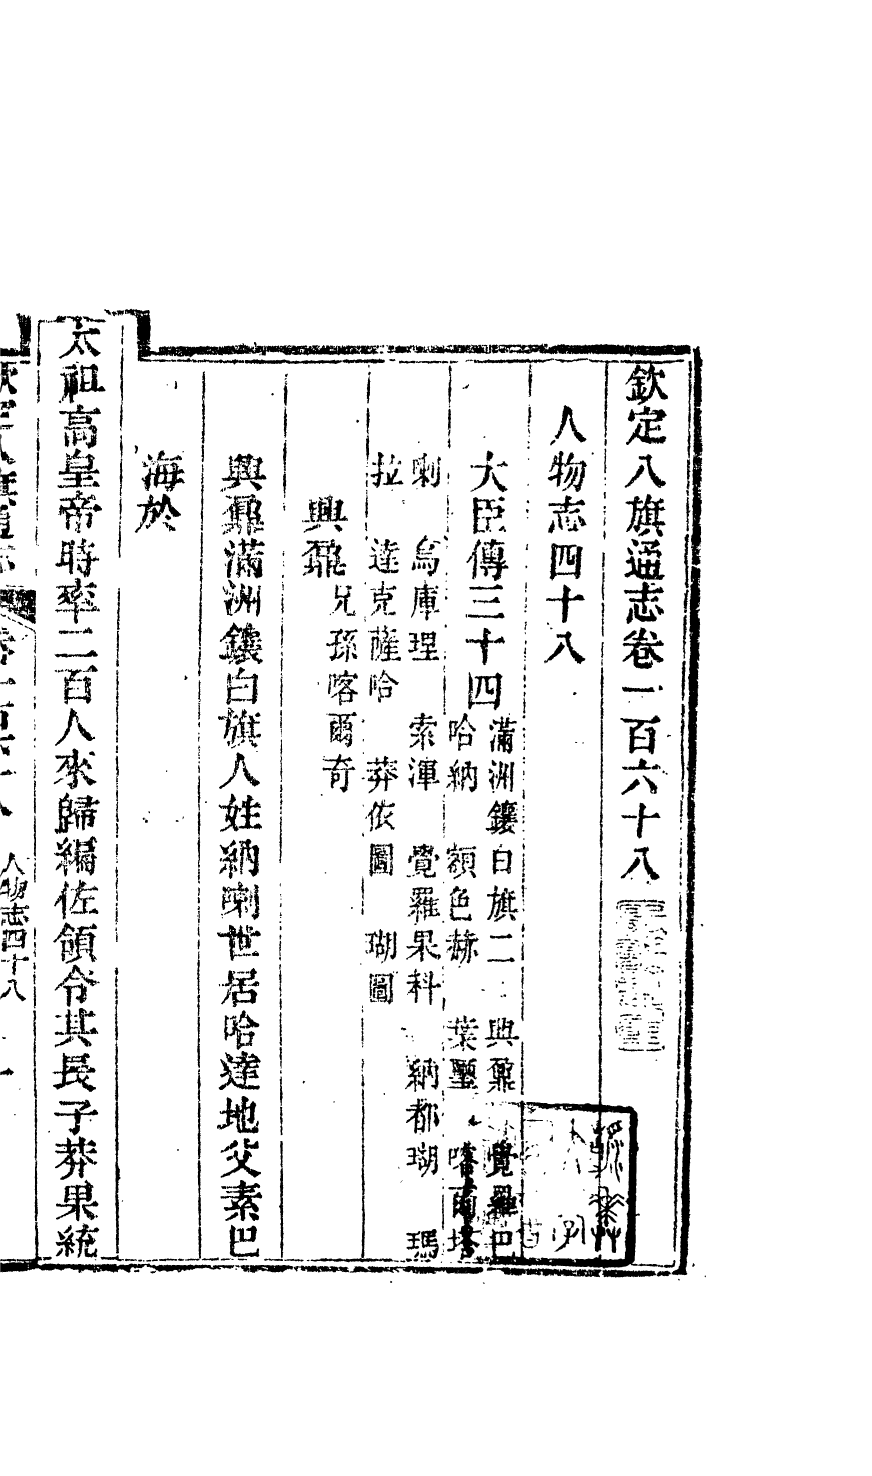 欽定八旗通志卷一百六十八
人物志四十八
大臣傳三十四
滿洲鑲白旗二 興鼐 覺羅巴
哈納 額色赫 葉璽 喀爾塔
喇 烏庫理 索渾 覺羅果科 納都瑚 瑪
拉 達克薩哈 莽依圖 瑚圖
興鼐 兄孫喀爾奇
興鼐滿洲鑲白旗人姓納喇世居哈達地父素巴
海於
太祖高皇帝時率二百人來歸編佐領令其長子莽果統
欽定八旗通志 卷一百六十八 人物志四十八 一